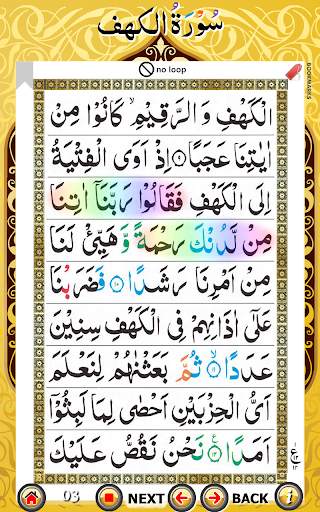 سُوْرَةُ الْكَهْف
no loop
BOOKMARKS
الْكَهْفِ وَ الرَّقِيْمِ ۙ كَانُوْا مِنْ
اٰيٰتِنَا عَجَبًا ۝۹ اِذْ اَوَى الْفِتْيَةُ
اِلَى الْكَهْفِ فَقَالُوْا رَبَّنَاۤ اٰتِنَا
مِنْ لَّدُنْكَ رَحْمَةً وَّ هَيِّئْ لَنَا
مِنْ اَمْرِنَا رَشَدًا ۝۱۰ فَضَرَبْنَا
عَلٰۤى اٰذَانِهِمْ فِى الْكَهْفِ سِنِيْنَ
عَدَدًا ۝۱۱ۙ ثُمَّ بَعَثْنٰهُمْ لِنَعْلَمَ
اَىُّ الْحِزْبَيْنِ اَحْصٰى لِمَا لَبِثُوْۤا
اَمَدًا ۝۱۲ نَحْنُ نَقُصُّ عَلَيْكَ
ع
03 NEXT BACK i